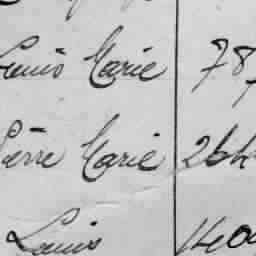 Louis Marie 78
Pierre Marie 264
Louis 1400